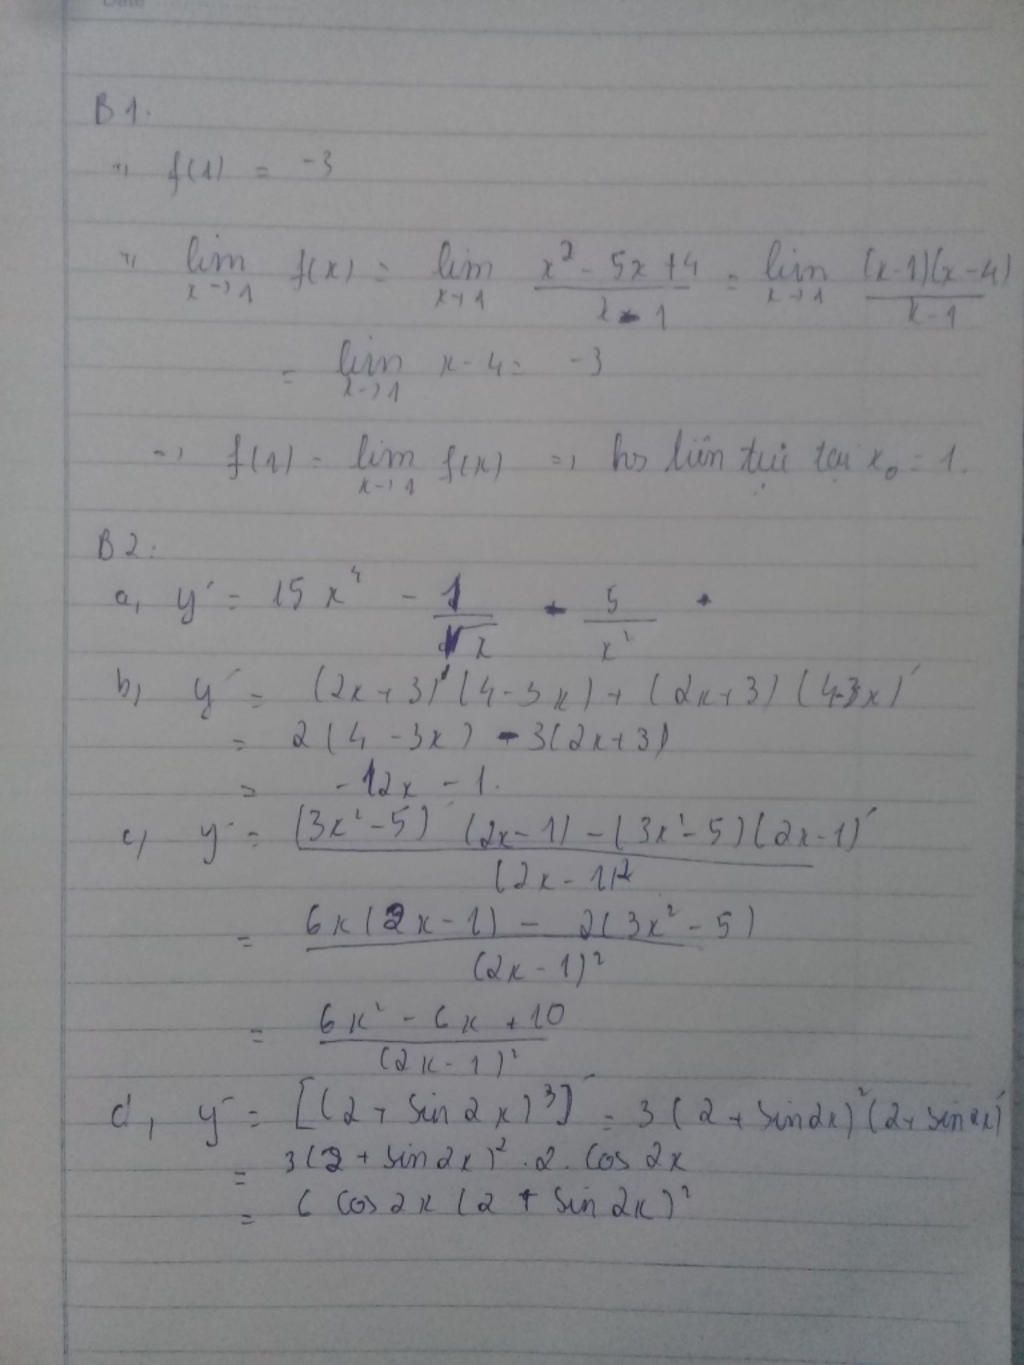 B1.
" f(1) = -3
" lim x→1 f(x) = lim x→1 (x² - 5x + 4)/(x - 1) = lim x→1 (x-1)(x-4)/(x-1)
= lim x→1 x - 4 = -3
=> f(1) = lim x→1 f(x) => hs liên tục tại x₀ = 1.
B2:
a, y' = 15x⁴ - 1/√x - 5/x² .
b, y' = (2x+3)'(4-3x) + (2x+3)(4-3x)'
= 2(4-3x) - 3(2x+3)
= -12x - 1.
c, y' = ((3x²-5)'(2x-1) - (3x²-5)(2x-1)')/(2x-1)²
= (6x(2x-1) - 2(3x²-5))/(2x-1)²
= (6x² - 6x + 10)/(2x-1)²
d, y' = [(2 + sin2x)³]' = 3(2 + sin2x)²(2 + sin2x)'
= 3(2 + sin2x)² . 2 . cos 2x
= 6 cos2x (2 + sin 2x)²